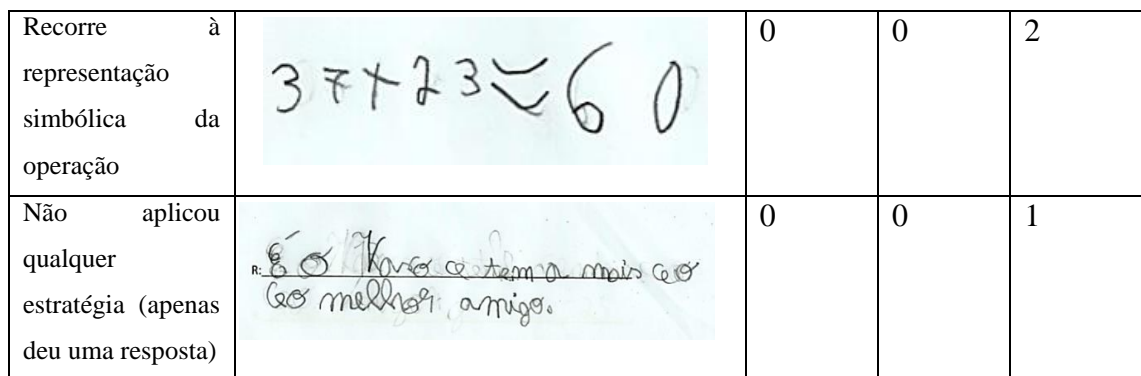 Recorre à 0 0 2
representação
simbólica da
operação
37+23=60
Não aplicou 0 0 1
qualquer
estratégia (apenas
deu uma resposta)
R: É o a tem a mais
melhor amigo.